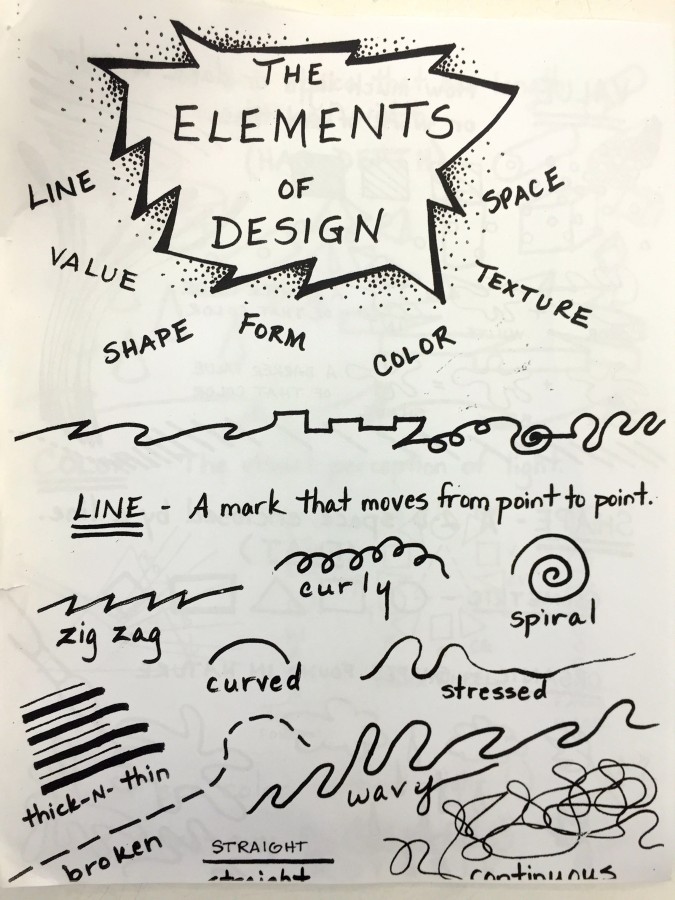 THE
ELEMENTS
OF
DESIGN
LINE
SPACE
VALUE
TEXTURE
SHAPE
FORM
COLOR
LINE - A mark that moves from point to point.
curly
spiral
zig zag
curved
stressed
thick-N-thin
wavy
broken
STRAIGHT
straight
continuous